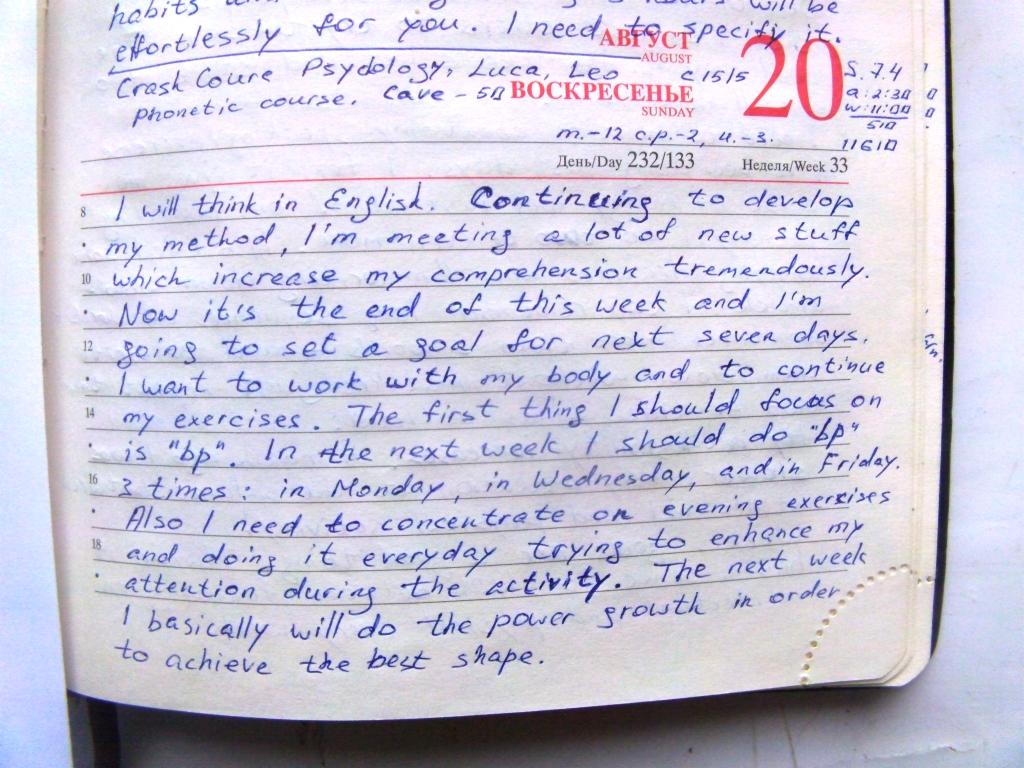 habits will be
effortlessly for you. I need to specify it.
АВГУСТ
AUGUST
20
Crash Coure Psydology, Luca, Leo c 15/5
S. 7.4
phonetic course. Cave - 5П
ВОСКРЕСЕНЬЕ
SUNDAY
m.-12 c.p.-2, u.-3.
День/Day 232/133 Неделя/Week 33
8 I will think in English. Continuing to develop
my method, I'm meeting a lot of new stuff
10 which increase my comprehension tremendously.
Now it's the end of this week and I'm
12 going to set a goal for next seven days.
I want to work with my body and to continue
14 my exercises. The first thing I should focus on
is "bp". In the next week I should do "bp"
16 3 times: in Monday, in Wednesday, and in Friday.
Also I need to concentrate on evening exersises
18 and doing it everyday trying to enhance my
attention during the activity. The next week
I basically will do the power growth in order
to achieve the best shape.